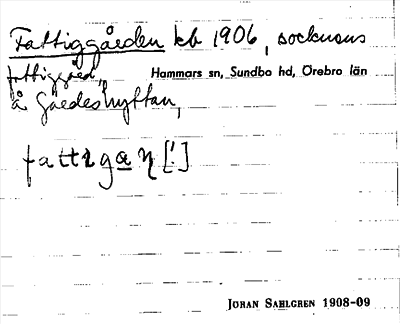 Fattiggården kb 1906, socknens
fattiggård,
Hammars sn, Sundbo hd, Örebro län
å Gårdeshyttan,
fattɩgaη [!]
JOHAN SAHLGREN 1908-09